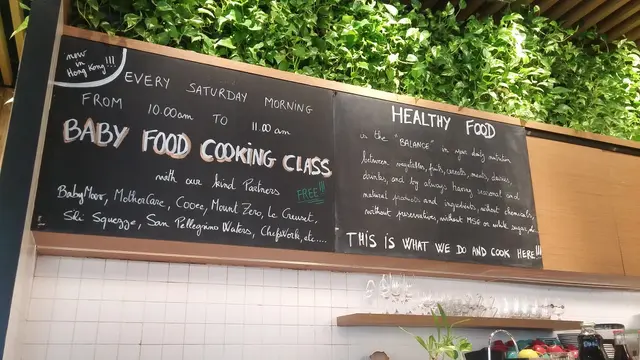 now
in
Hong Kong!!!
EVERY SATURDAY MORNING
FROM 10.00am TO 11.00 am
BABY FOOD COOKING CLASS
with our kind Partners FREE!!!
BabyMoov, MotherCare, Cooee, Mount Zero, Le Creuset,
Ski Squezze, San Pellegrino Waters, Chef Work, etc.....
HEALTHY FOOD
is the "BALANCE" in your daily nutrition
between vegetables, fruits, cereals, meats, dairies,
drinks, and by always having seasonal and
natural products and ingredients, without chemicals,
without preservatives, without MSG or white sugar,
THIS IS WHAT WE DO AND COOK HERE!!!